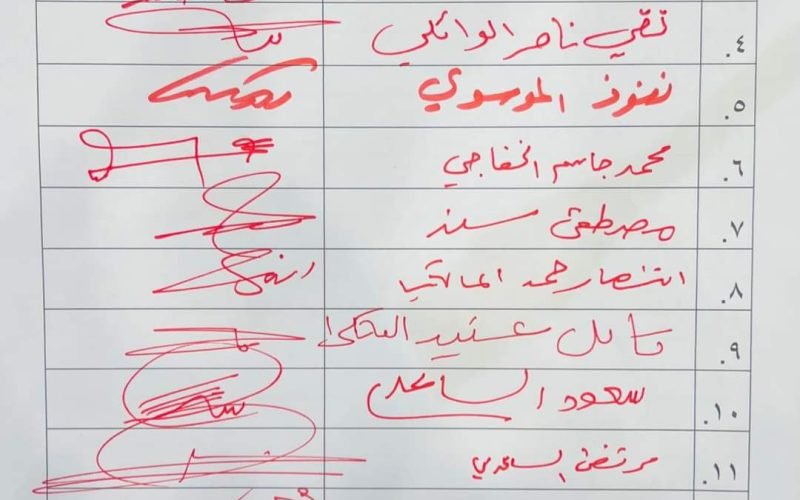 ٤. تقي ناصر الوائلي
٥. نفوذ الموسوي
٦. محمد جاسم الخفاجي
٧. مصطفى سند
٨. انتصار حمد المالكي
٩. عنيد
١٠. سعود الساعدي
١١. مرتضى الساعدي